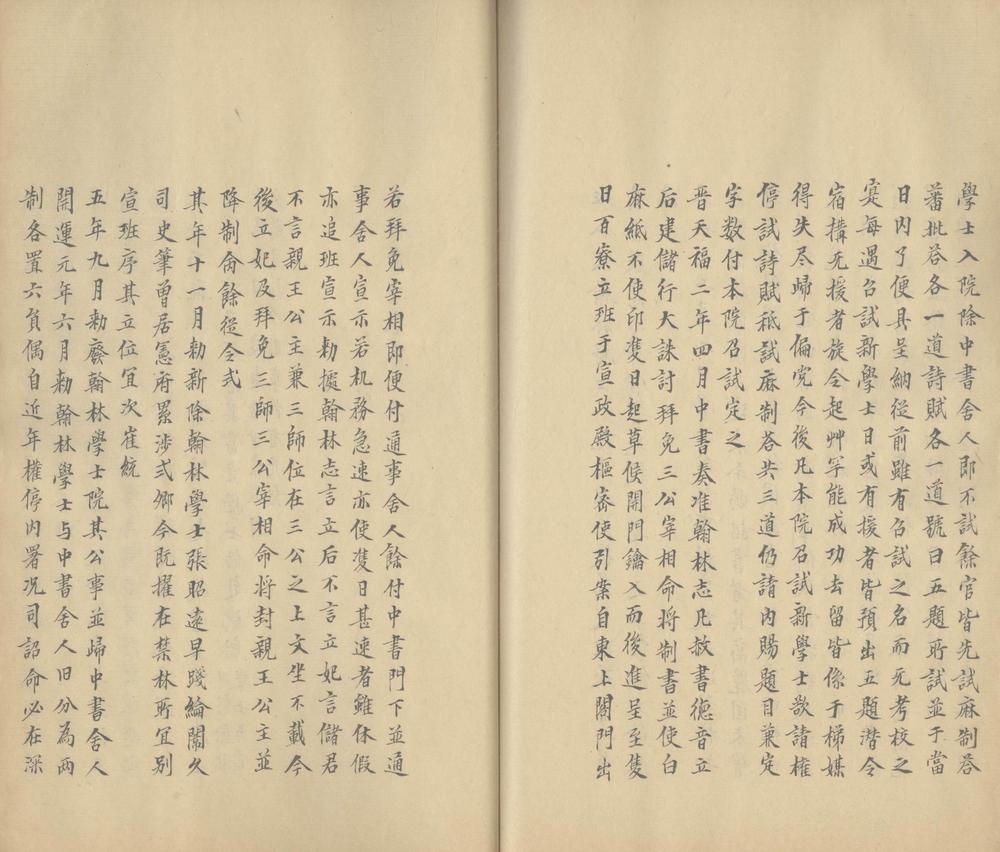 學士入院除中書舍人即不試餘官皆先試麻制荅
蕃批荅各一道詩賦各一道號曰五題所試並于當
日内了便具呈納從前雖有召試之名而无考校之
寔每遇召試新學士日或有援者皆預出五題潜令
宿搆无援者旋令起艸罕能成功去留皆係于梯媒
得失尽歸于偏党今後凡本院召試新學士欲請權
停試詩賦祗試麻制荅共三道仍請内賜題目兼定
字数付本院召試定之
晋天福二年四月中書奏准翰林志凡赦書德音立
后建儲行大誅討拜免三公宰相命将制書並使白
麻紙不使印隻日起草候開門鑰入而後進呈至隻
日百寮立班于宣政殿樞密使引案自東上閤門出
若拜免宰相即便付通事舍人餘付中書門下並通
事舍人宣示若机務急速亦使隻日甚速者雖休假
亦追班宣示勅據翰林志言立后不言立妃言儲君
不言親王公主兼三師位在三公之上文坐不載今
後立妃及拜免三師三公宰相命将封親王公主並
降制命餘從令式
其年十一月勅新除翰林學士張昭遠早踐綸闈久
司史筆曾居憲府累涉弍卿今既擢在禁林所宜別
宣班序其立位宜次崔梲
五年九月勅廢翰林學士院其公事並歸中書舍人
開運元年六月勅翰林學士与中書舍人旧分為兩
制各置六負偶自近年權停内署况司詔命必在深